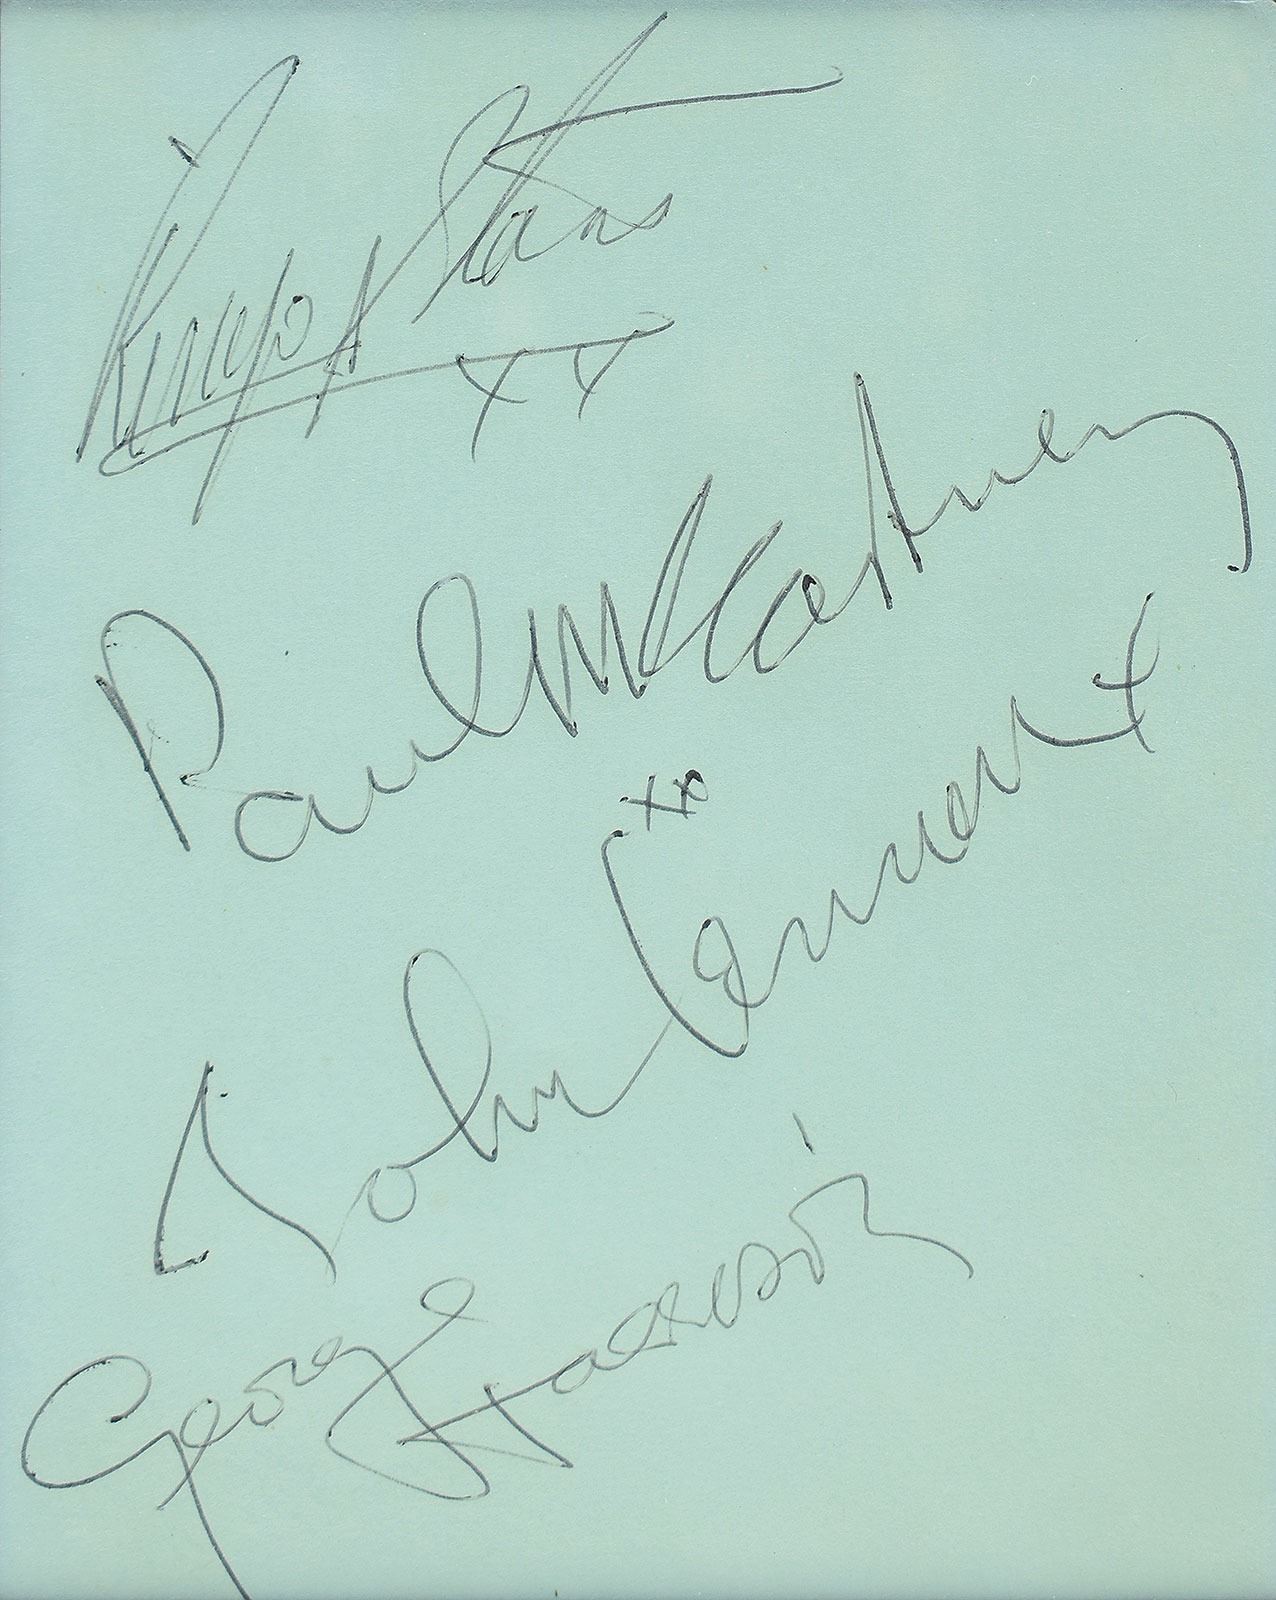 Ringo Starr
xx
Paul McCartney
xx
John Lennon x
George Harrison